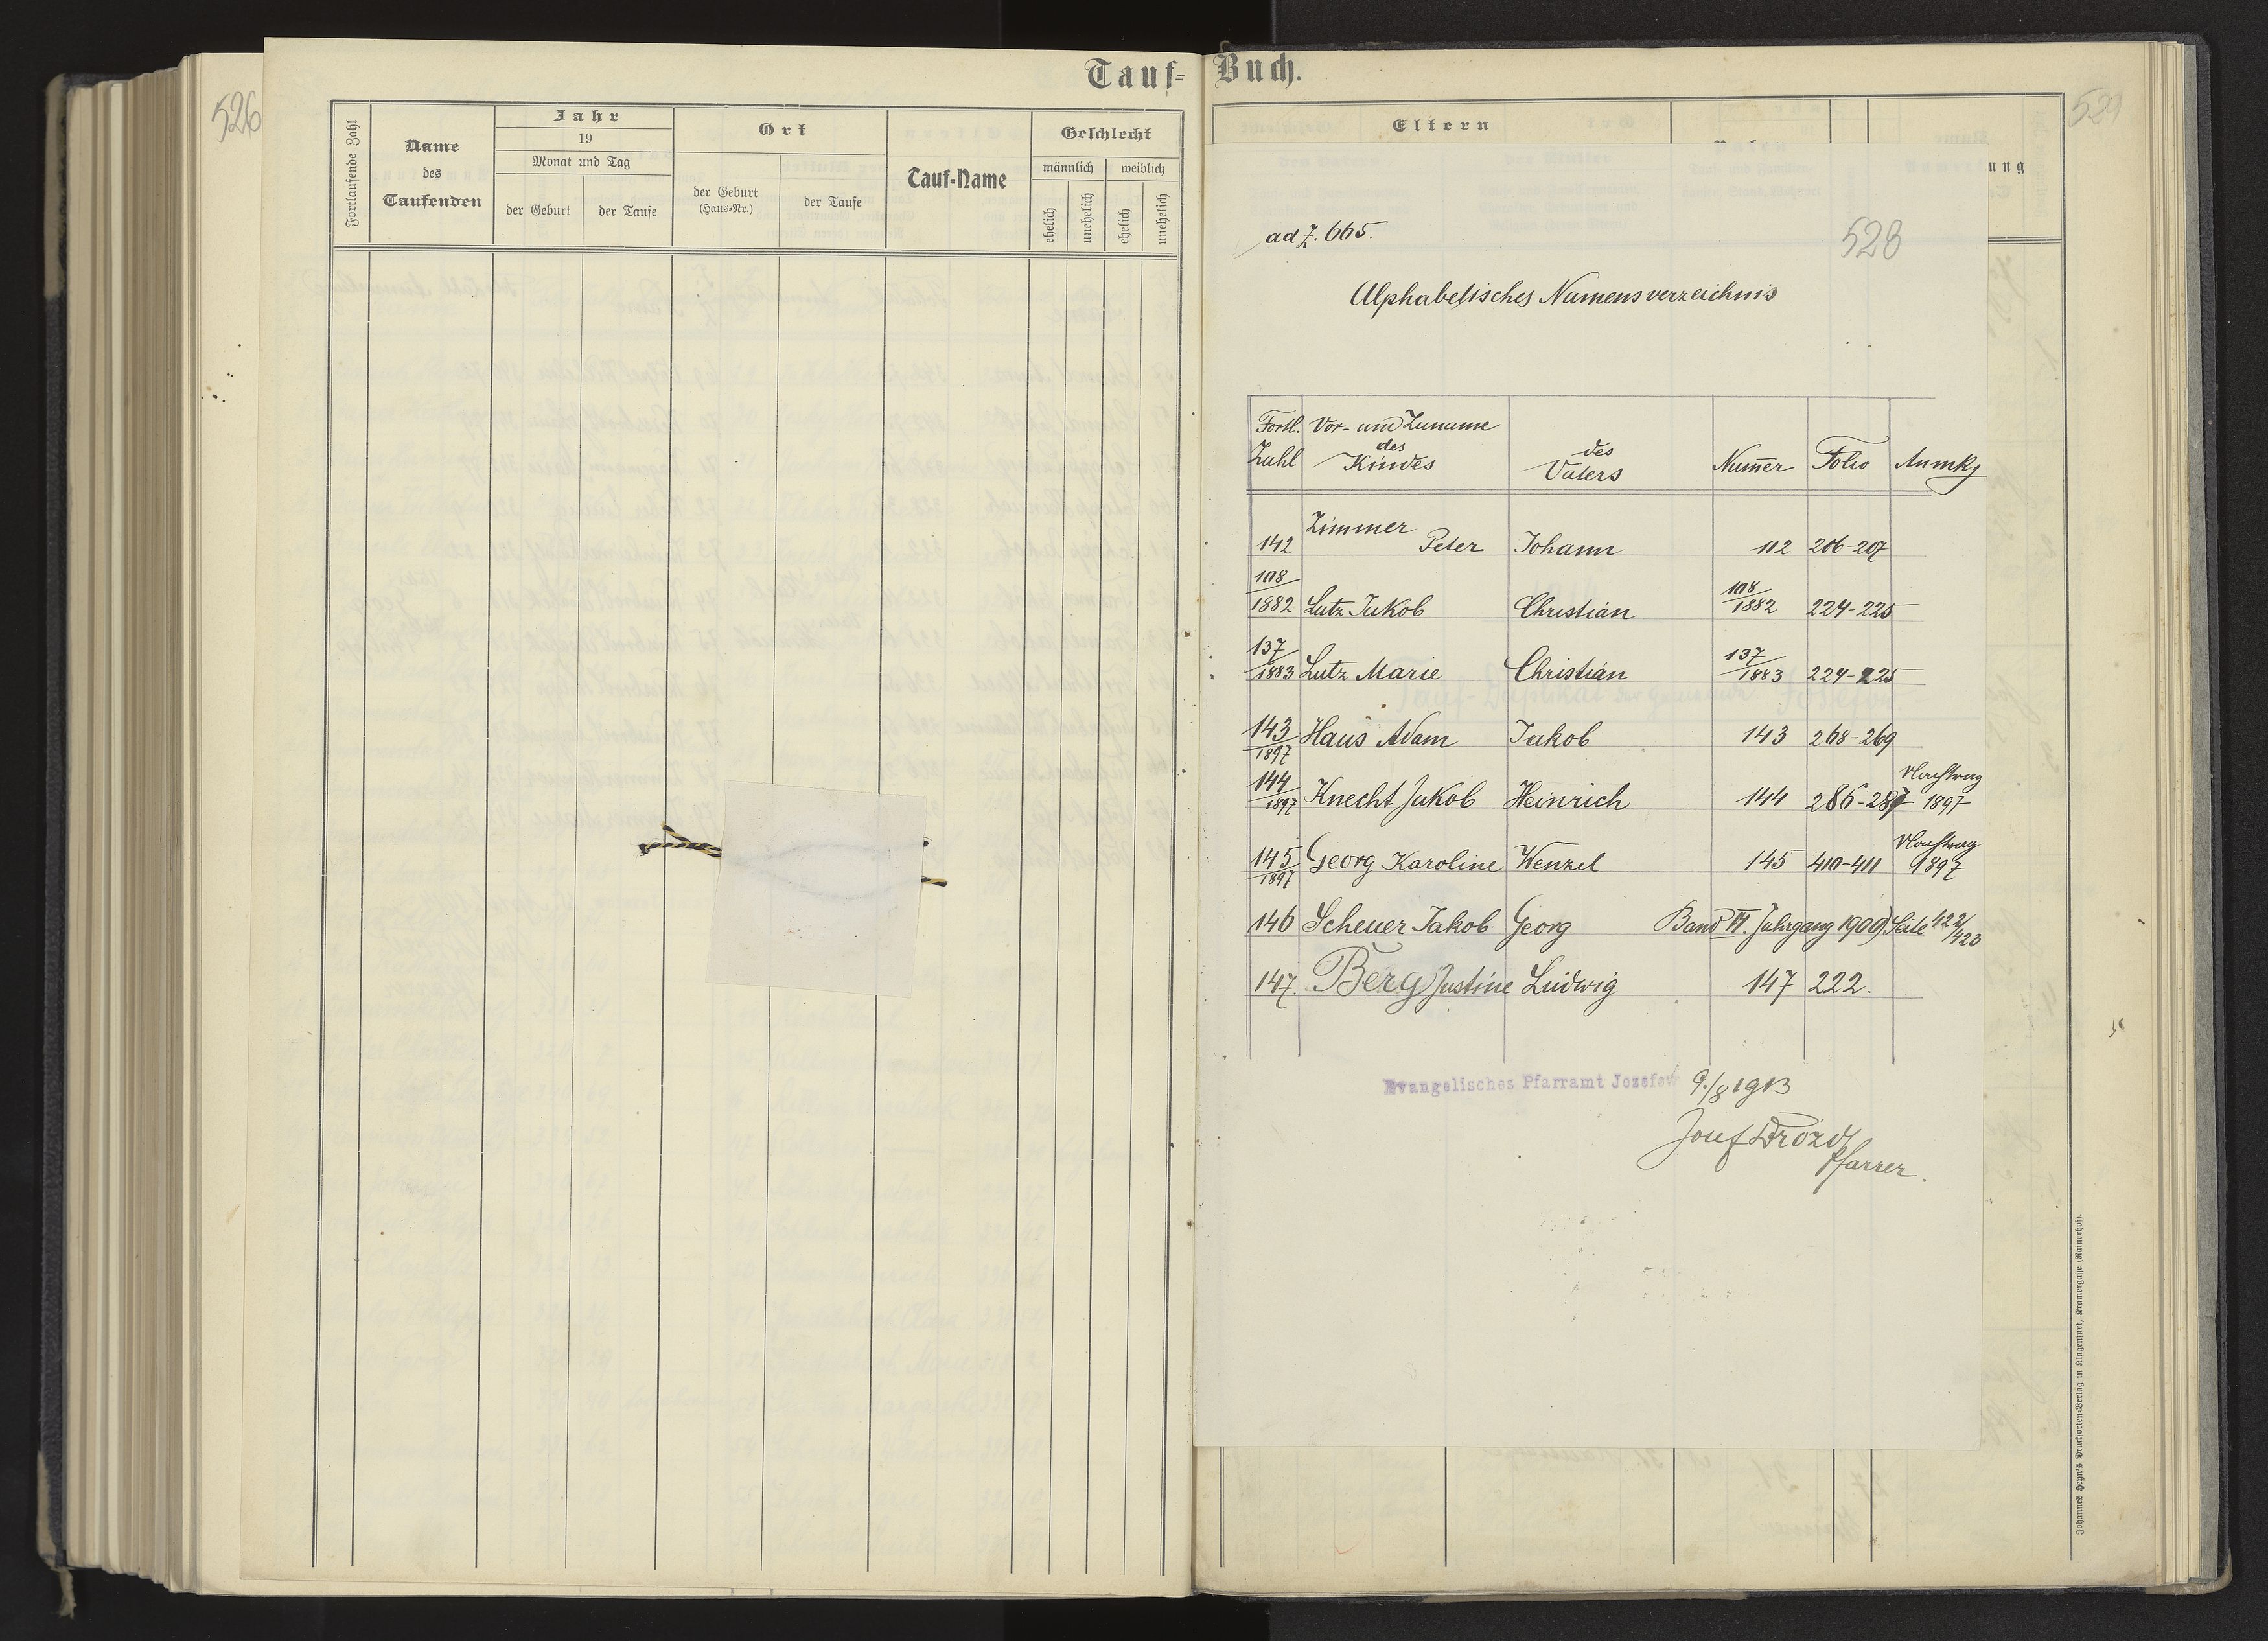 526
Tauf-Buch.
Fortlaufende Zahl
Name des Taufenden
Jahr
19
Monat und Tag
der Geburt
der Taufe
Ort
der Geburt (Haus-Nr.)
der Taufe
Tauf-Name
Geschlecht
männlich
weiblich
ehelich
unehelich
ehelich
unehelich
Eltern
ung
ad Z. 665.
528
Alphabetisches Namensverzeichnis
Fortl. Zahl
Vor- und Zuname des Kindes
des Vaters
Num̄er
Folio
Anmkg
142 Zimmer Peter Johann 112 206-207
108/1882 Lutz Jakob Christian 108/1882 224-225
137/1883 Lutz Marie Christian 137/1883 224-225
143/1897 Haus Adam Jakob 143 268-269
144/1897 Knecht Jakob Heinrich 144 286-287 Nachtrag 1897
145/1897 Georg Karoline Wenzel 145 410-411 Nachtrag 1897
146 Scheuer Jakob Georg Band VI. Jahrgang 1909) Seite 422/423
147. Berg Justine Ludwig 147 222.
Evangelisches Pfarramt Jozefow
9./8 1913
Josef Drozd
Pfarrer.
Johannes Heyn's Drucksorten-Verlag in Klagenfurt, Kramergasse (Rainerhof).